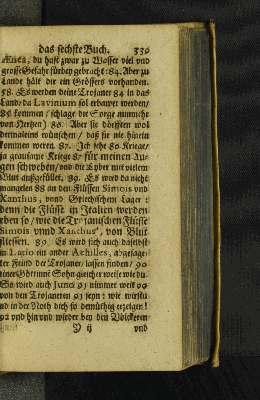 das sechste Buch. 339
Ænea, du hast zwar zu Wasser viel und
grosse Gefahr fürbey gebracht: 84. Aber zu
Lande hält dir ein Grössers vorhanden.
58. Es werden deine Trojaner 84 in das
Land/ da Lavinium sol erbawet werden/
85 kommen / schlage die Sorge nunmehr
von Hertzen) 86. Aber sie dörfften wol
dermaleins wünschen / daß sie nie hinein
kommen weren. 87. Ich sehe 86 Kriege/
ja grausame Kriege 87 für meinen Au-
gen schweben/ und die Tyber mit vielem
Blut außgefüllet. 89. Es wird da nicht
mangelen 88 an den Flüssen Simois und
Xanthus, unnd Griechischem Läger:
denn die Flüsse in Italien werden
eben so / wie die Trojanischen Flüsse
Simois unnd Xanthus, von Blut
fliessen. 89. Es wird sich auch daselbst
in Latio ein ander Achilles, abgesag-
ter Feind der Trojaner/ lassen finden/ 90
einer Göttinne Sohn gleicher weise wie du.
So wird auch Juno 91 nimmer weit 90
von den Trojanern 91 seyn: wie wirstu
nd in der Noth dich so demüthig erzeigen!
92 und hin und wieder bey den Völckeren
Y ij und